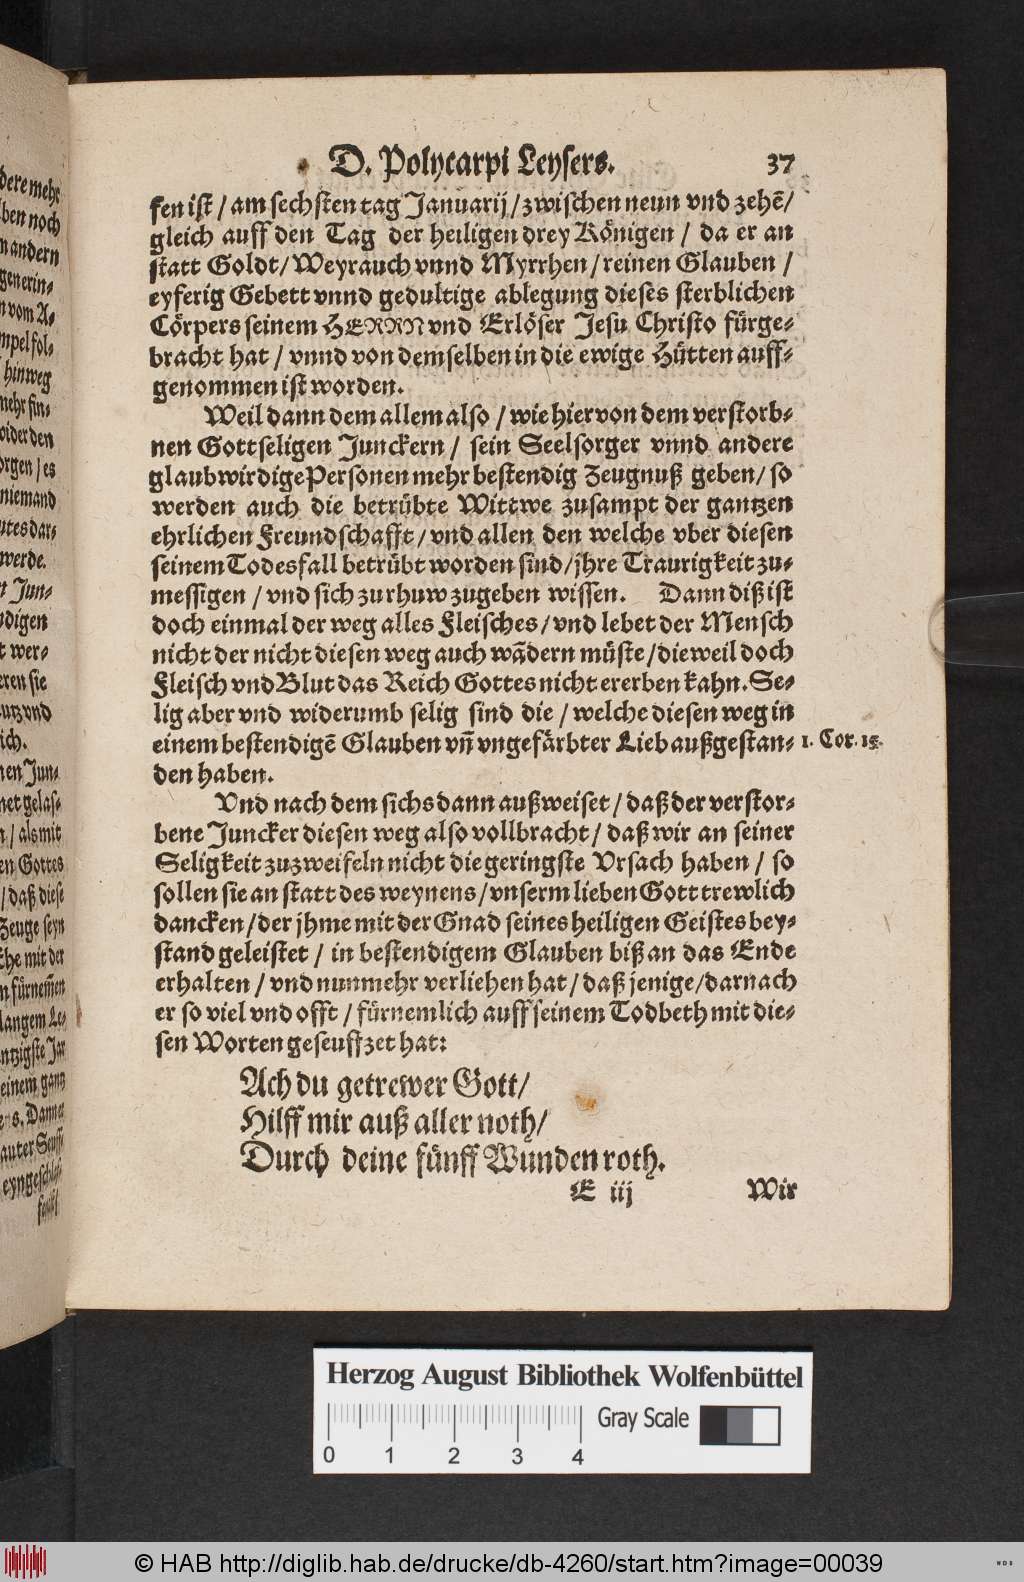 D. Polycarpi Leysers. 37
fen ist / am sechsten tag Januarij / zwischen neun vnd zehẽ /
gleich auff den Tag der heiligen drey Königen / da er an
statt Goldt / Weyrauch vnnd Myrrhen / reinen Glauben /
eyferig Gebett vnnd gedultige ablegung dieses sterblichen
Cörpers seinem HERRN vnd Erlöser Jesu Christo fürge-
bracht hat / vnnd von demselben in die ewige Hütten auff-
genommen ist worden.
Weil dann dem allem also / wie hiervon dem verstorb-
nen Gottseligen Junckern / sein Seelsorger vnnd andere
glaubwirdige Personen mehr bestendig Zeugnuß geben / so
werden auch die betrübte Wittwe zusampt der gantzen
ehrlichen Freundschafft / vnd allen den welche vber diesen
seinem Todesfall betrübt worden sind / jhre Traurigkeit zu-
messigen / vnd sich zu rhuw zugeben wissen. Dann diß ist
doch einmal der weg alles Fleisches / vnd lebet der Mensch
nicht der nicht diesen weg auch wãdern müste / dieweil doch
Fleisch vnd Blut das Reich Gottes nicht ererben kahn. Se-
lig aber vnd widerumb selig sind die / welche diesen weg in
einem bestendigẽ Glauben vñ vngefärbter Lieb außgestan-
1. Cor. 15.
den haben.
Vnd nach dem sichs dann außweiset / daß der verstor-
bene Juncker diesen weg also vollbracht / daß wir an seiner
Seligkeit zuzweifeln nicht die geringste Vrsach haben / so
sollen sie an statt des weynens / vnserm lieben Gott trewlich
dancken / der jhme mit der Gnad seines heiligen Geistes bey-
stand geleistet / in bestendigem Glauben biß an das Ende
erhalten / vnd nunmehr verliehen hat / daß jenige / darnach
er so viel vnd offt / fürnemlich auff seinem Todbeth mit die-
sen Worten geseuffzet hat:
Ach du getrewer Gott /
Hilff mir auß aller noth /
Durch deine fünff Wunden roth.
E iij Wir
Herzog August Bibliothek Wolfenbüttel
Gray Scale
0 1 2 3 4
© HAB http://diglib.hab.de/drucke/db-4260/start.htm?image=00039